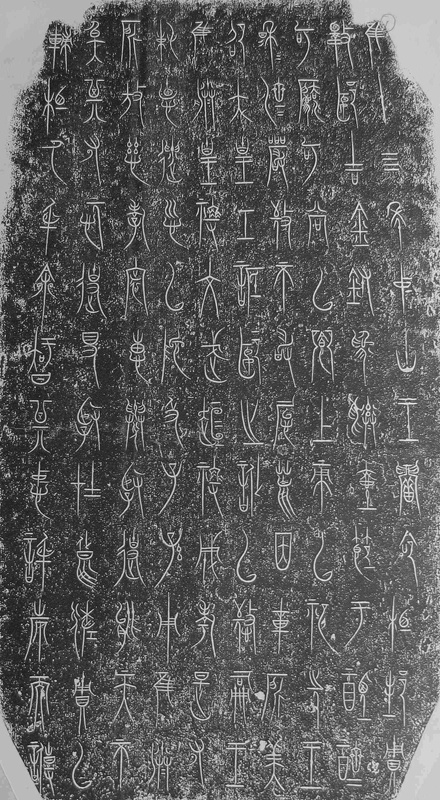 隹十四年中山王䰳命相邦賙
擇郾吉金鑄為彝壺節于禋𬫍
可法可尚以饗上帝以祀先王
穆穆濟濟嚴敬不敢怠荒因載所美
卲大皇工詆郾之訛以憼嗣王
隹朕皇祖文武桓祖成考是又
純德遺訓以施及子孫用隹朕
所放慈孝寰惠舉賢使能天不
斁其又忨使得賢才良佐賙以
輔相厥身余知其忠信也而專